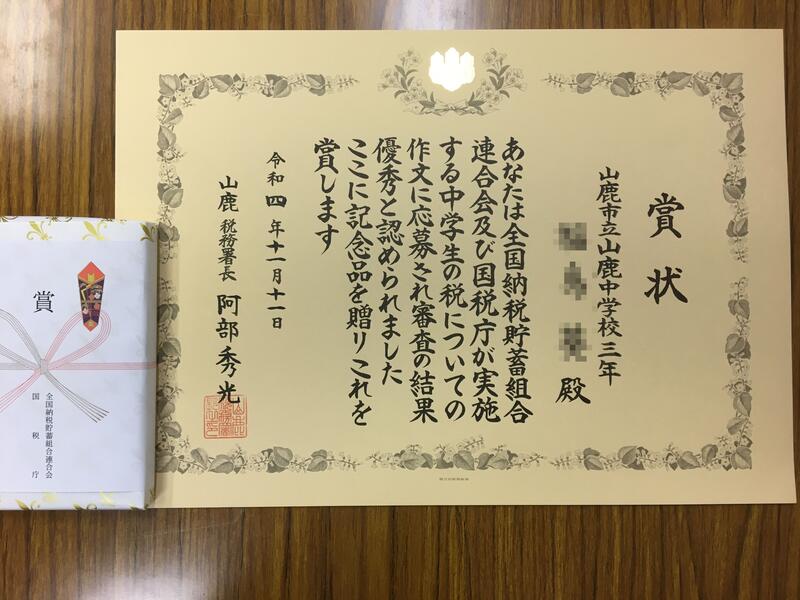 賞状
山鹿市立山鹿中学校三年
殿
あなたは全国納税貯蓄組合
連合会及び国税庁が実施
する中学生の税についての
作文に応募され審査の結果
優秀と認められました
ここに記念品を贈りこれを
賞します
令和四年十一月十一日
山鹿税務署長 阿部秀光
賞
全国納税貯蓄組合連合会
国税庁